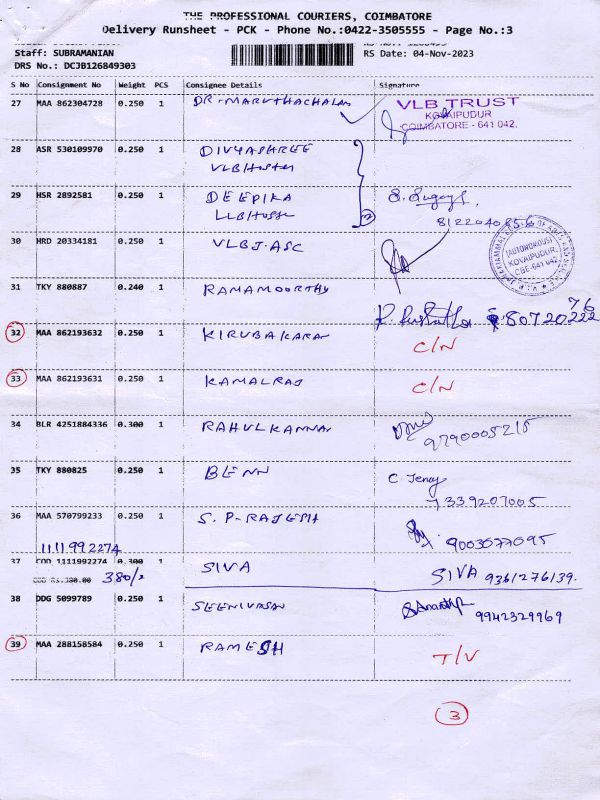 THE PROFESSIONAL COURIERS, COIMBATORE
Delivery Runsheet - PCK - Phone No.:0422-3505555 - Page No.:3
Staff: SUBRAMANIAN
RS Date: 04-Nov-2023
DRS No.: DCJB126849303
S No Consignment No Weight PCS Consignee Details Signature
27 MAA 862304728 0.250 1 DR-MARUTHACHALAM
VLB TRUST
KOVAIPUDUR
COIMBATORE - 641 042.
28 ASR 530109970 0.250 1 DIVYASHREE
VLB Hostel
29 HSR 2892581 0.250 1 DEEPIKA
8122040856
30 HRD 20334181 0.250 1 VLBJ.ASC
(AUTONOMOUS)
KOVAIPUDUR,
CBE-641 042.
31 TKY 880887 0.240 1 RAMAMOORTHY
32 MAA 862193632 0.250 1 KIRUBAKARAN C/N
33 MAA 862193631 0.250 1 KAMALRAJ C/N
34 BLR 4251884336 0.300 1 RAHULKANNAN 9790005215
35 TKY 880825 0.250 1 BENN C. Jenoy
7339207005
36 MAA 570799233 0.250 1 S.P-RAJESH
9003077095
1111992274
37 COD 1111992274 0.300 1 SIVA SIVA 9361276139.
COD RS.380.00 380/-
38 DDG 5099789 0.250 1 SEENIVASAN 9942329969
39 MAA 288158584 0.250 1 RAMESH T/V
3